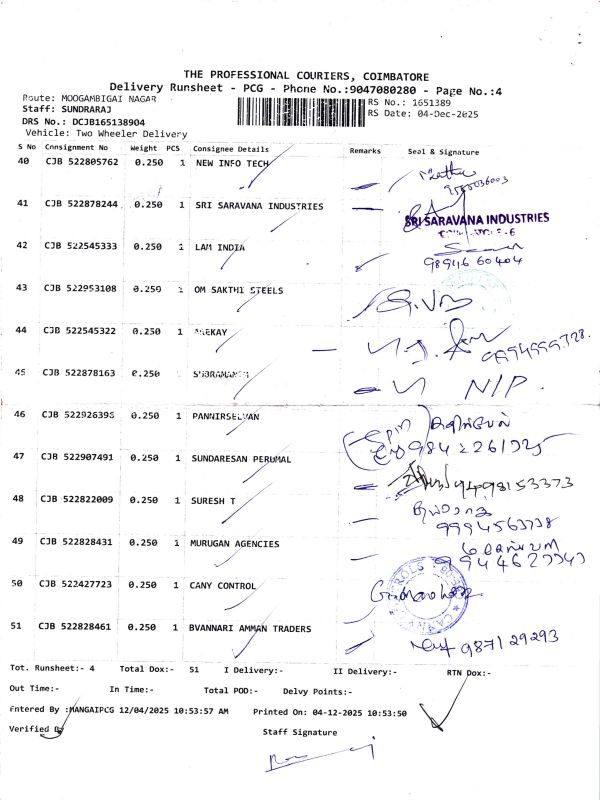 THE PROFESSIONAL COURIERS, COIMBATORE
Delivery Runsheet - PCG - Phone No.:9047080280 - Page No.:4
Route: MOOGAMBIGAI NAGAR
Staff: SUNDRARAJ
DRS No.: DCJB165138904
Vehicle: Two Wheeler Delivery
RS No.: 1651389
RS Date: 04-Dec-2025
S No Consignment No Weight PCS Consignee Details Remarks Seal & Signature
40 CJB 522805762 0.250 1 NEW INFO TECH
41 CJB 522878244 0.250 1 SRI SARAVANA INDUSTRIES
SRI SARAVANA INDUSTRIES
42 CJB 522545333 0.250 1 LAM INDIA
98946 60404
43 CJB 522953108 0.250 1 OM SAKTHI STEELS
44 CJB 522545322 0.250 1
45 CJB 522878163 0.250 1
N/P.
46 CJB 522926396 0.250 1 PANNIRSELVAN
47 CJB 522907491 0.250 1 SUNDARESAN PERUMAL
9498153373
48 CJB 522822009 0.250 1 SURESH T
9994563738
49 CJB 522828431 0.250 1 MURUGAN AGENCIES
50 CJB 522427723 0.250 1 CANY CONTROL
51 CJB 522828461 0.250 1 BVANNARI AMMAN TRADERS
987129293
Tot. Runsheet:- 4 Total Dox:- 51 I Delivery:- II Delivery:- RTN Dox:-
Out Time:- In Time:- Total POD:- Delvy Points:-
Entered By :MANGAIPCG 12/04/2025 10:53:57 AM Printed On: 04-12-2025 10:53:50
Verified By Staff Signature